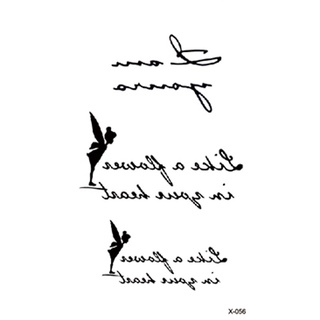 I am
yours
Like a flower
in your heart
Like a flower
in your heart
X-056